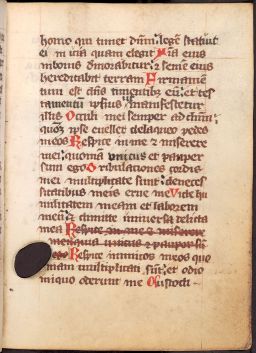 homo qui timet dnm: legem statuit
ei in via quam elegit Aia eius
in bonis demorabitur: 2 semen eius
hereditabit terram Firmamen
tum est dns timentibus eum: et tes
tamentum ipsius manifestetur
illis Oculi mei semper ad dnm:
quom ipse evellet de laqueo pedes
meos Respice in me & miserere
mei: quoniam unicus et pauper
sum ego Tribulationes cordis
mei multiplicate sunt: de neces
sitatibus meis erue me Vide hu
militatem meam et laborem
meum: & dimitte universa delicta
mea Respice in me & miserere
mei quia unicus & pauper su
Respice inimicos meos quo
niam multiplicati sunt: et odio
iniquo oderunt me Custodi